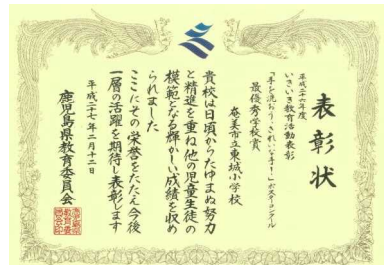 表彰状
平成二十六年度
いきいき教育活動表彰
「手を洗おう、きれいな手!」ポスターコンクール
最優秀学校賞
奄美市立東城小学校
貴校は日頃からたゆまぬ努力
と精進を重ね他の児童生徒の
模範となる輝かしい成績を収め
られました
ここにその栄誉をたたえ今後
一層の活躍を期待し表彰します
平成二十七年二月十二日
鹿児島県教育委員会